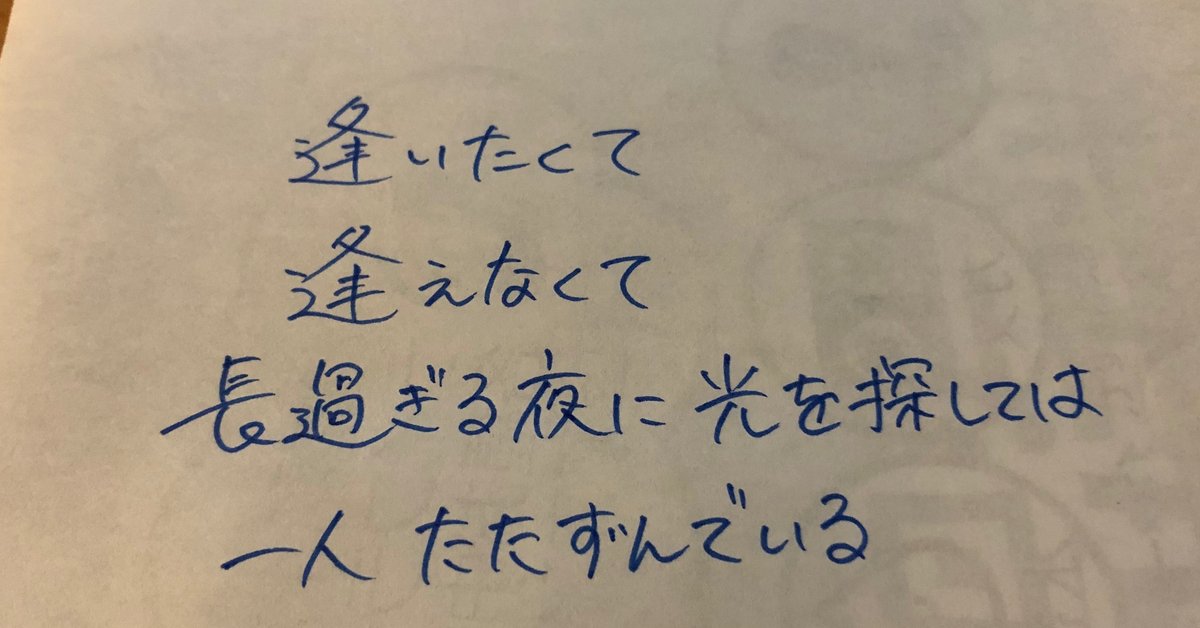 逢いたくて
逢えなくて
長過ぎる夜に光を探しては
一人 たたずんでいる